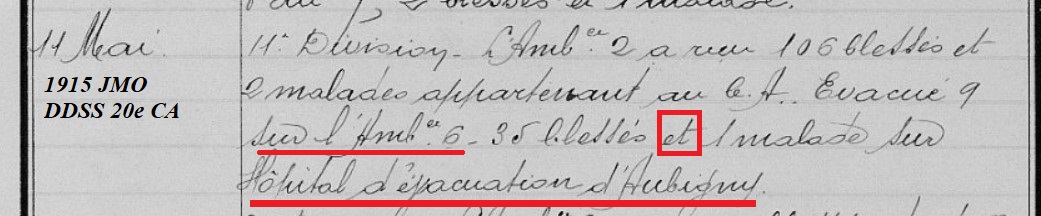 2 blessés et 1 malade.
11 Mai. 11e Division - L'Ambce 2 a reçu 106 blessés et
1915 JMO
DDSS 20e CA
2 malades appartenant au C.A. Evacué 9
sur l'Ambce 6 - 35 blessés et 1 malade sur
Hôpital d'évacuation d'Aubigny.